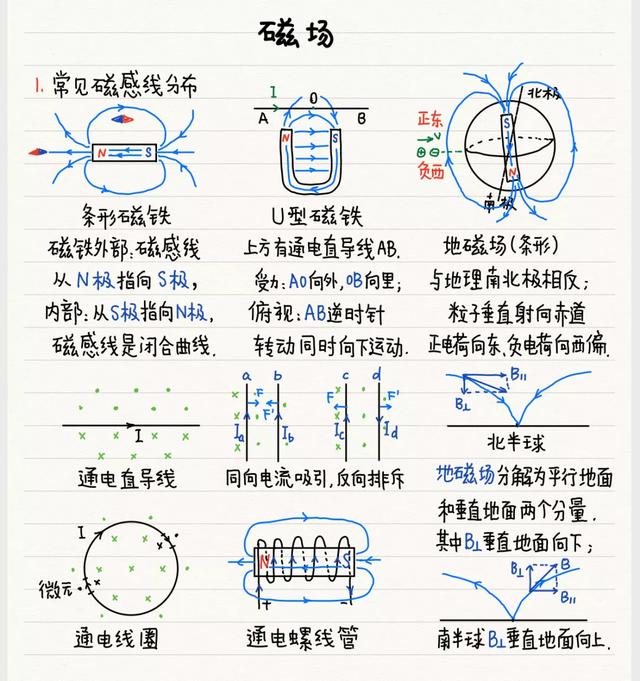 磁场
1. 常见磁感线分布
N S
条形磁铁
磁铁外部:磁感线
从N极指向S极,
内部:从S极指向N极,
磁感线是闭合曲线.
I O
A B
N S
U型磁铁
上方有通电直导线AB.
受力:AO向外,OB向里;
俯视:AB逆时针
转动同时向下运动.
北极
正东
V
⊕⊖
负西
S
N
南极
地磁场(条形)
与地理南北极相反;
粒子垂直射向赤道
正电荷向东、负电荷向西偏.
I
通电直导线
a b c d
F F F'
F'
Ia Ib Ic Id
同向电流吸引,反向排斥
B∥
B⊥
北半球
地磁场分解为平行地面
和垂直地面两个分量.
其中B⊥垂直地面向下;
I
微元
通电线圈
N S
+ -
通电螺线管
B⊥ B
B∥
南半球B⊥垂直地面向上.